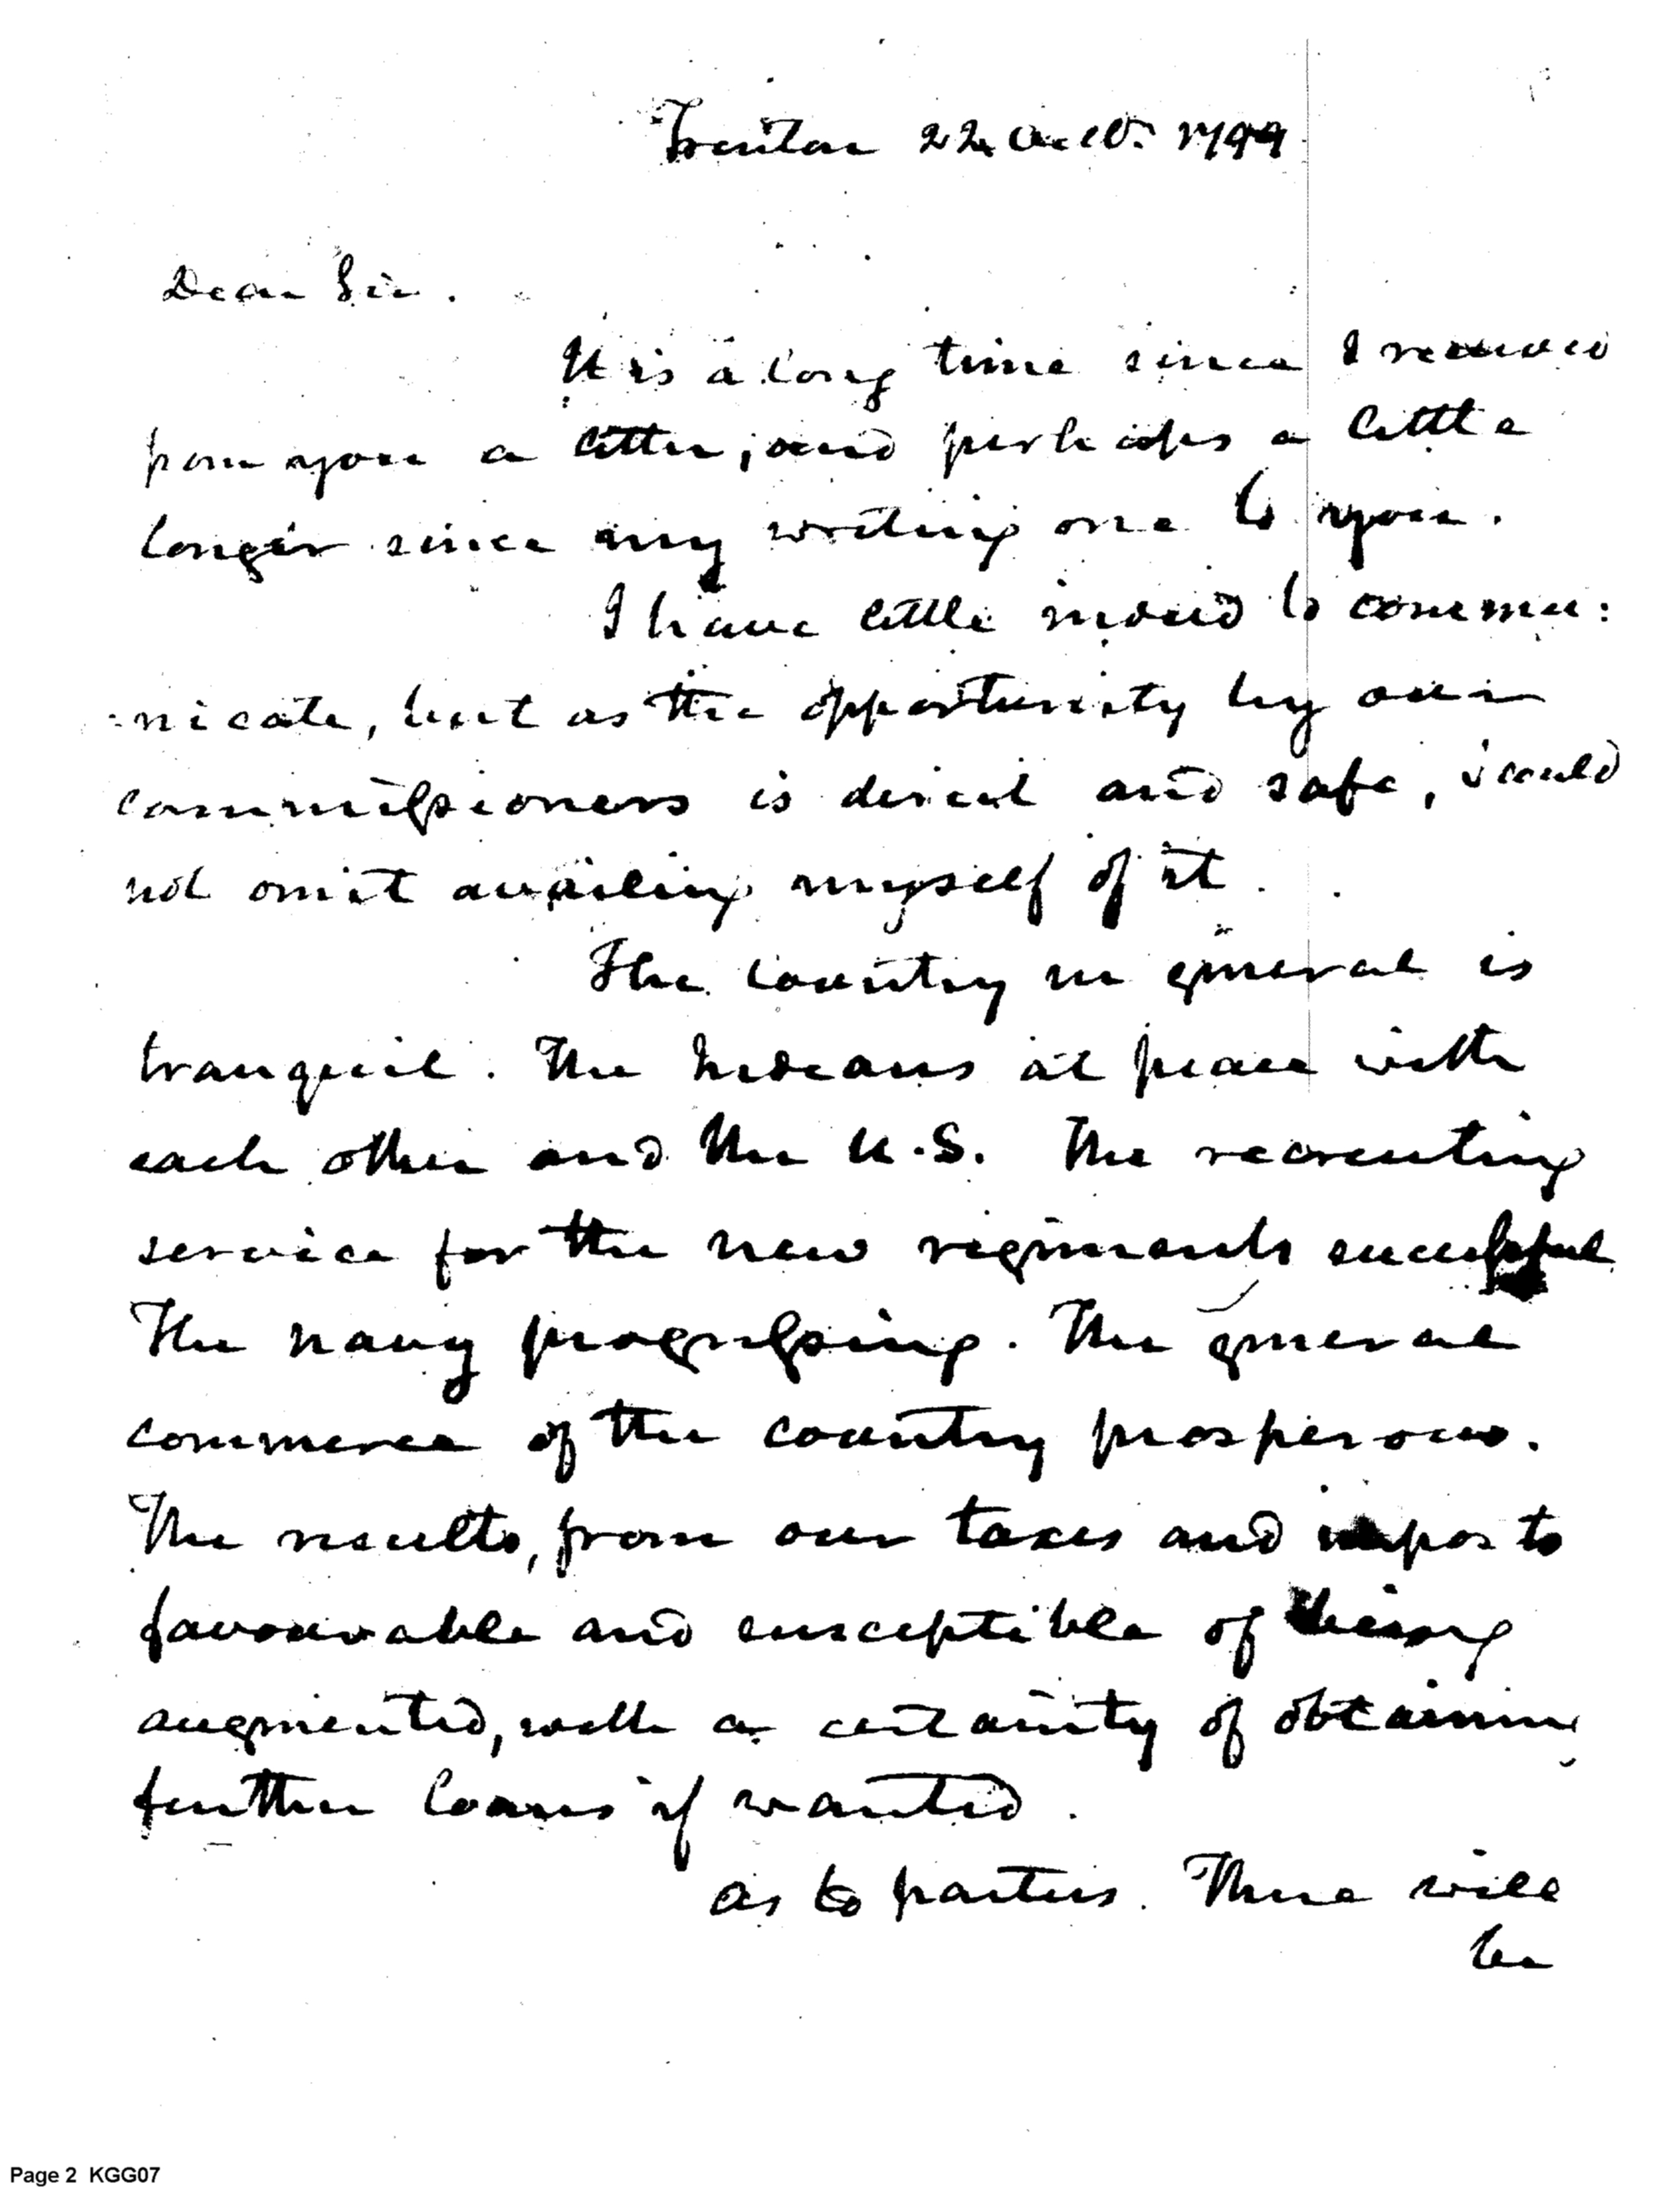 Trenton 22 Octo. 1799
Dear Sir.
It is a long time since I received
from you a letter; and perhaps a little
longer since my writing one to you.
I have little indeed to commu:
:nicate, but as the opportunity by our
commissioners is direct and safe, I could
not omit availing myself of it.
The country in general is
tranquil. The Indians at peace with
each other and the U.S. The recreuting
service for the new regiments successful
The navy progressing. The general
commerce of the country prosperous.
The results, from our taxes and imposts
favourable and susceptible of being
augmented, with a certainty of obtaining
further loans if wanted.
as to parties. There will
be
Page 2 KGG07